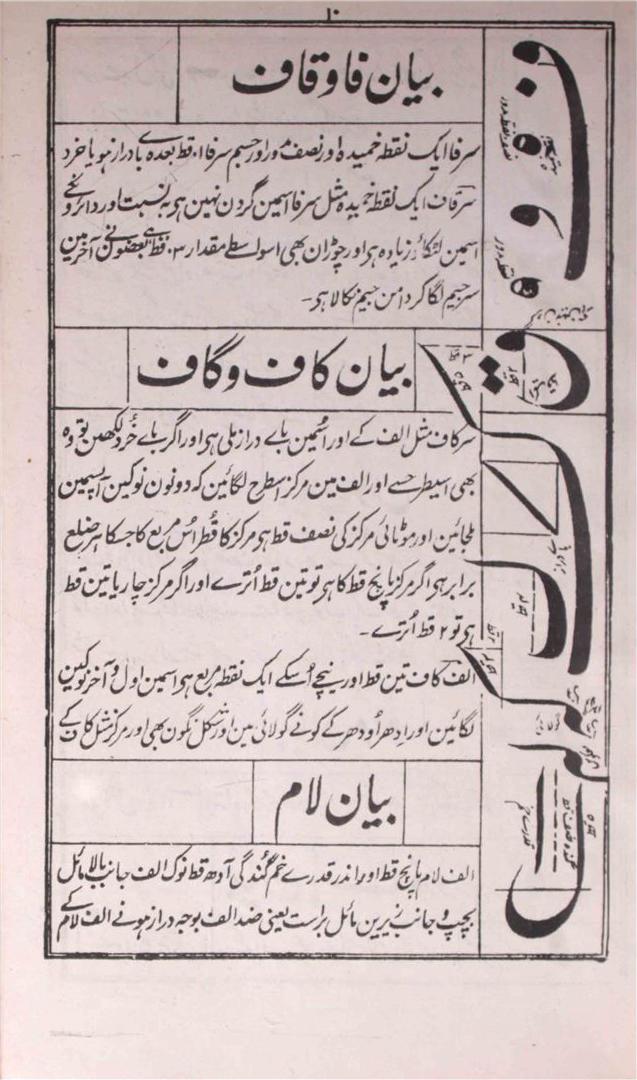 ۱۰
بیان فا و قاف
سرفا ایک نقطہ خمیدہ اور نصف مدور اور جسم سرفا ۱ قط بعدہ بے یا دراز ہو یا خرد
سرقاف ایک نقطہ خمیدہ مثل سرفا اسمین گردن نہین ہو بہ نسبت اور دائرونکے
اسمین لٹکاؤ زیادہ ہی اور چوڑان بھی اسواسطے مقدار ۳ قط ہی بعضونے آخر مین
سر جیم لگا کر دامن جیم نکالا ہو۔
بیان کاف و گاف
سرکاف مثل الف کے اور اسمین بای دراز ملی ہی اور اگر بای خرد لکھین تو وہ
بھی اسیطرحسے اور الف مین مرکز اسطرح لگائین کہ دونون نوکین آپسمین
ملجائین اور موٹائی مرکز کی نصف قط ہو مرکز کا قطر اس مربع کا جسکا ہر ضلع
برابر ہی اگر مرکز پانچ قط کا ہو تو تین قط اُترے اور اگر مرکز چار یا تین قط
ہو تو ۲ قط اُترے۔
الف کاف تین قط اور نیچے اُسکے ایک نقطہ مربع ہو اسمین اول و آخر نوکین
لگائین اور اِدھر اُودھر کے کونے گولائی مین اور شکل نگون بھی اور مرکز مثل کاف کے
بیان لام
الف لام پانچ قط اور اندر قدرے خم گندگی آدھ قط نوک الف جانب بالا مائل
بچپ و جانب زیرین مائل براست یعنی ضد الف بوجہ دراز ہونے الف لام کے